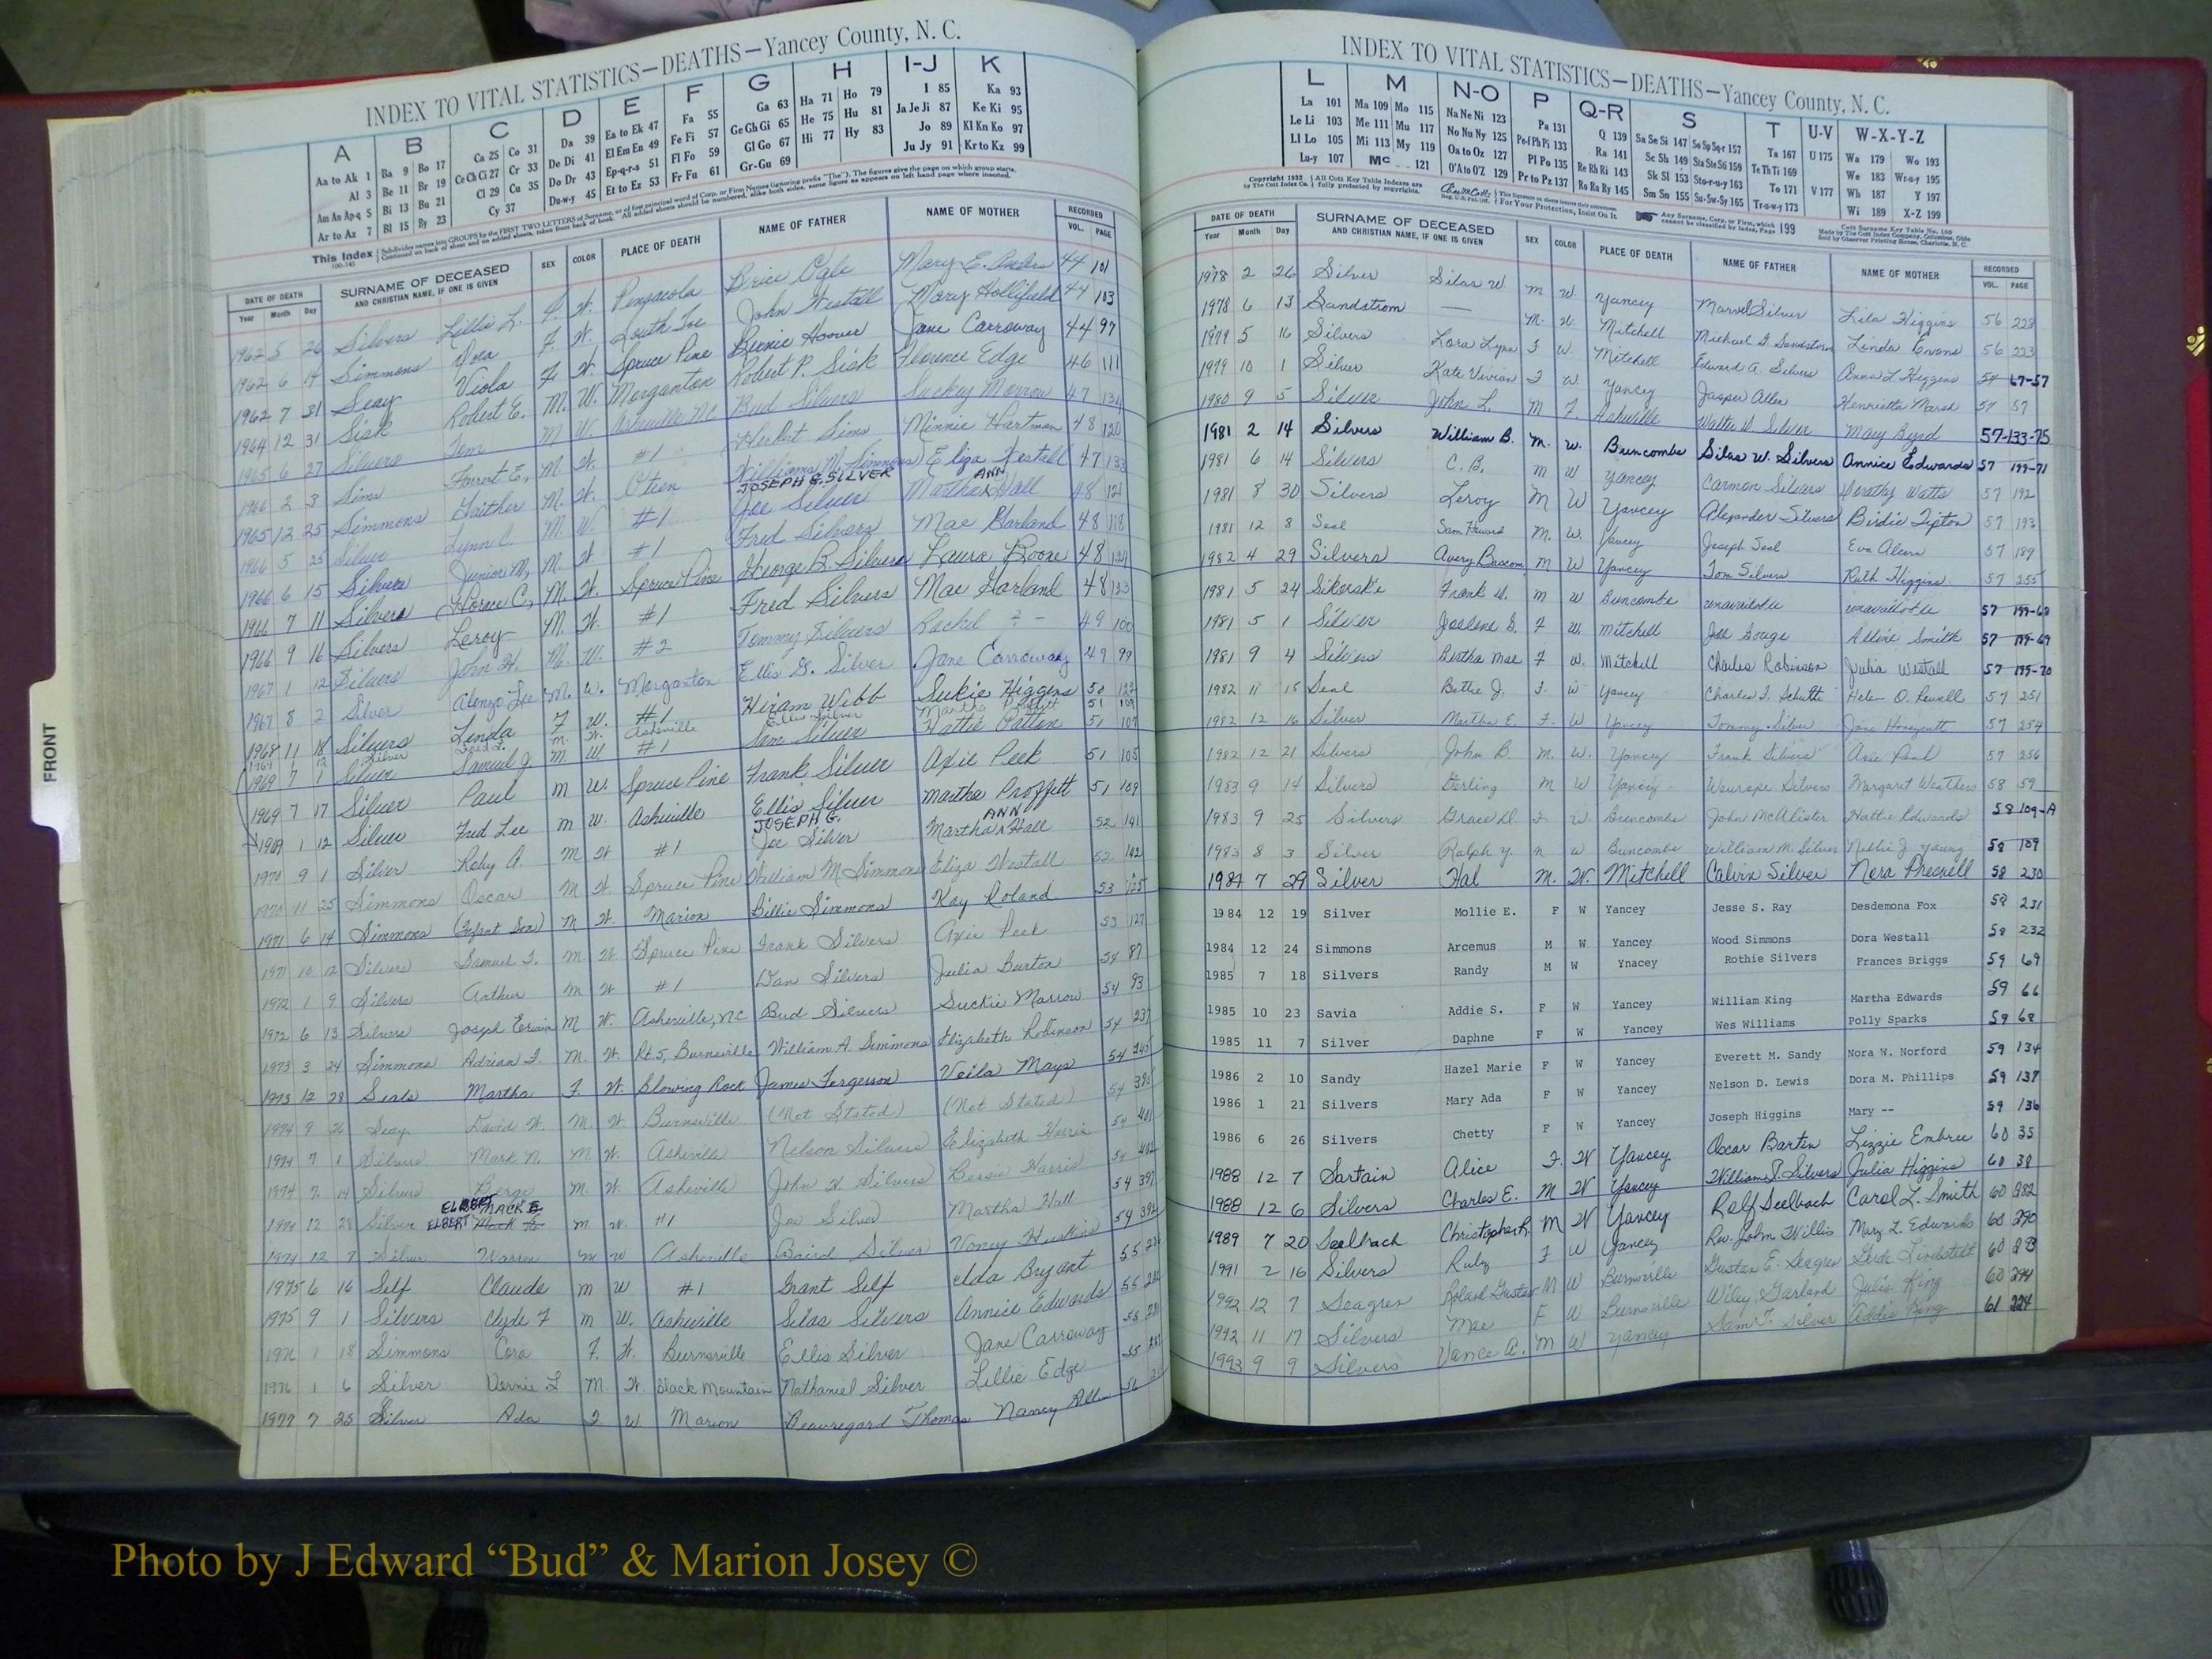 INDEX TO VITAL STATISTICS—DEATHS—Yancey County, N. C.
A B C D E F G H I-J K
Aa to Ak 1 Ba 9 Bo 17 Ca 25 Co 31 Da 39 Ea to Ek 47 Fa 55 Ga 63 Ha 71 Ho 79 I 85 Ka 93
Al 3 Be 11 Br 19 Ce Ch Ci 27 Cr 33 De Di 41 El Em En 49 Fe Fi 57 Ge Gh Gi 65 He 75 Hu 81 Ja Je Ji 87 Ke Ki 95
Am An Ap-q 5 Bi 13 Bu 21 Cl 29 Cu 35 Do Dr 43 Ep-q-r-s 51 Fl Fo 59 Gl Go 67 Hi 77 Hy 83 Jo 89 Kl Kn Ko 97
Ar to Az 7 Bl 15 By 23 Cy 37 Du-w-y 45 Et to Ez 53 Fr Fu 61 Gr-Gu 69 Ju Jy 91 Kr to Kz 99
This Index
DATE OF DEATH SURNAME OF DECEASED AND CHRISTIAN NAME, IF ONE IS GIVEN SEX COLOR PLACE OF DEATH NAME OF FATHER NAME OF MOTHER RECORDED
Year Month Day VOL. PAGE
1962 5 26 Silvers Lillie L. F. W. Pensacola Brice Ogle Mary E. 44 101
1962 6 14 Simmons Dora F. W. South Toe John Westall Mary Hollifield 44 103
1962 7 31 Seay Viola F. W. Spruce Pine Hoover Jane Carroway 44 97
1964 12 31 Sisk Robert E. M. W. Morganton Robert P. Sisk Florence Edge 46 111
1965 6 27 Silvers Tom M W. Asheville NC Bud Silvers Suckey Morrow 47 134
1966 2 3 Sims Forrest E. M. W. #1 Herbert Sims Minnie Hartman 48 120
1965 12 25 Simmons Gaither M. W. Oteen William M. Simmons Eliza Westall 47 133
1966 5 25 Silver Lynn C. M. W. #1 JOSEPH G. SILVER Joe Silver Martha ANN Hall 48 121
1966 6 15 Silvers Junior M. M. W. #1 Fred Silvers Mae Garland 48 118
1966 7 11 Silvers Horace C. M. W. Spruce Pine George B. Silvers Laura Boone 48 124
1966 9 16 Silvers Leroy M. W. #1 Fred Silvers Mae Garland 48 123
1967 1 12 Silvers John H. M. W. #2 Tommy Silvers Rachel ? - 49 100
1967 8 2 Silver Alonzo Lee M. W. Morganton Ellis G. Silver Jane Carroway 49 99
1968 11 18 Silvers Linda F W. #1 Hiram Webb Sukie Higgins 50 122
1969 1 12 Silver Fred L. M. W. Asheville Ellis Silver Martha 51 109
1969 7 1 Silver Samuel J. M W #1 Tom Silver Hattie Patton 51 107
1969 7 17 Silver Paul M W. Spruce Pine Frank Silver Axie Peek 51 105
1969 1 12 Silver Fred Lee M W. Asheville Ellis Silver Martha Proffitt 51 109
1970 9 1 Silver Roby A. M W #1 JOSEPH G. Joe Silver Martha ANN Hall 52 141
1970 11 25 Simmons Oscar M W. Spruce Pine William M Simmons Eliza Westall 52 142
1971 6 14 Simmons (Infant Son) M W Marion Billie Simmons Kay Roland 53 125
1971 10 12 Silvers Samuel T. M. W. Spruce Pine Frank Silvers Axie Peek 53 127
1972 1 9 Silvers Arthur M W #1 Dan Silvers Julia Burton 54 87
1972 6 13 Silvers Joseph Erwin M W. Asheville, NC Bud Silvers Suckie Marrow 54 93
1973 3 24 Simmons Adrian F. M. W. Rt. 5, Burnsville William A. Simmons Elizabeth Robinson 54 237
1973 12 28 Seals Martha F. W. Blowing Rock James Fergerson Veila Mays 54 245
1974 9 26 Seay David W. M. W. Burnsville (Not Stated) (Not Stated) 54 395
1974 7 1 Silvers Mark N. M W. Asheville Nelson Silvers Elizabeth Harris 54 401
1974 7 14 Silvers Berge M W. Asheville John H. Silvers Bessie Harris 54 402
1974 12 28 Silver ELBERT MACK E. ELBERT M W #1 Joe Silver Martha Hall 54 397
1974 12 7 Silver Warren M W Asheville Baird Silver Nancy Huskins 54 392
1975 6 16 Self Claude M W #1 Grant Self Elda Bryant 55
1975 9 1 Silvers Clyde F M W. Asheville Silas Silvers Annice Edwards 55
1976 1 18 Simmons Cora F. W. Burnsville Ellis Silver Jane Carroway 55
1976 1 6 Silver Vernie L M. W. Black Mountain Nathaniel Silver Lillie Edge 55
1977 7 25 Silver Ada F W Marion Beauregard Thomas Nancy Allen 56
INDEX TO VITAL STATISTICS—DEATHS—Yancey County, N. C.
L M N-O P Q-R S T U-V W-X-Y-Z
La 101 Ma 109 Mo 115 Na Ne Ni 123 Pa 131 Q 139 Sa Se Si 147 So Sp Sq-r 157 Ta 167 U 175 Wa 179 Wo 193
Le Li 103 Me 111 Mu 117 No Nu Ny 125 Pe-f Ph Pi 133 Ra 141 Sc Sh 149 Sta Ste Sti 159 Te Th Ti 169 We 183 Wr-u-y 195
Ll Lo 105 Mi 113 My 119 Oa to Oz 127 Pl Po 135 Re Rh Ri 143 Sk Sl 153 Sto-r-u-y 163 To 171 V 177 Wh 187 Y 197
Lu-y 107 Mc 121 O'A to O'Z 129 Pr to Pz 137 Ro Ru Ry 145 Sm Sn 155 Su-Sw-Sy 165 Tr-u-w-y 173 Wi 189 X-Z 199
DATE OF DEATH SURNAME OF DECEASED AND CHRISTIAN NAME, IF ONE IS GIVEN SEX COLOR PLACE OF DEATH NAME OF FATHER NAME OF MOTHER RECORDED
Year Month Day VOL. PAGE
1978 2 26 Silver Silas W M W. Yancey Marvel Silver Lila Higgins 56 228
1978 6 13 Sandstrom — M. W. Mitchell Michael G. Sandstorm Linda Evans 56 223
1979 5 16 Silvers Lora Lynn F W. Mitchell Edward A. Silvers Anna L Higgens 54 67-57
1979 10 1 Silver Kate Vivian F W. Yancey Jasper Allen Henrietta Marsh 57 57
1980 9 5 Silver John L. M F Asheville Walter W Silver Mary Byrd
1981 2 14 Silvers William B. M. W. Buncombe Silas W. Silvers Annice Edwards 57-133-75
1981 6 14 Silvers C. B. M W Yancey Carmon Silvers Dorothy Watts 57 199-71
1981 8 30 Silvers Leroy M W Yancey Alexander Silvers Birdie Tipton 57 192
1981 12 8 Seal Sam M. W. Yancey Joseph Seal Eva Alcorn 57 193
1982 4 29 Silvers Avery Bascom M W Yancey Tom Silvers Ruth Higgins 57 189
1981 5 24 Sikorski Frank W. M W Buncombe unavailable unavailable 57 255
1981 5 1 Silver Joelene G. F W. Mitchell Joe Gouge Alline Smith 57 199-68
1981 9 4 Silvers Bertha Mae F W. Mitchell Charles Robinson Julia Westall 57 199-69
1982 11 15 Seal Bettie J. F. W Yancey Charles F. Schutt Helen O. Powell 57 199-70
1982 12 16 Silver Martha E. F. W Yancey Tommy Silver Jane Honeycutt 57 251
1982 12 21 Silvers John B. M. W. Yancey Frank Silvers Axie Peek 57 254
1983 9 14 Silvers Sterling M W Yancey Silvers Margaret Weathers 57 256
1983 9 25 Silvers Grace D. F W. Buncombe John McAlister Hattie Edwards 58 59
1983 8 3 Silver Ralph Y. M W Buncombe William M. Silver Nellie J Young 58 109-A
1984 7 29 Silver Hal M. W. Mitchell Calvin Silver Nora Presnell 58 109
58 230
1984 12 19 Silver Mollie E. F W Yancey Jesse S. Ray Desdemona Fox 58 231
1984 12 24 Simmons Arcemus M W Yancey Wood Simmons Dora Westall 58 232
1985 7 18 Silvers Randy M W Ynacey Rothie Silvers Frances Briggs 59 69
1985 10 23 Savia Addie S. F W Yancey William King Martha Edwards 59 66
1985 11 7 Silver Daphne F W Yancey Wes Williams Polly Sparks 59 68
1986 2 10 Sandy Hazel Marie F W Yancey Everett M. Sandy Nora W. Norford 59 134
1986 1 21 Silvers Mary Ada F W Yancey Nelson D. Lewis Dora M. Phillips 59 137
1986 6 26 Silvers Chetty F W Yancey Joseph Higgins Mary -- 59 136
1988 12 7 Sartain Alice F. W Yancey Oscar Barten Lizzie Embree 60 35
1988 12 6 Silvers Charles E. M W Yancey William T. Silvers Julia Higgins 60 38
1989 7 20 Seelbach Christopher R. M W Yancey Ralf Seelbach Carol L. Smith 60 282
1991 2 16 Silvers Ruby F W Yancey Rev. John Willis Mary L. Edwards 60 290
1992 12 7 Seagren Roland Gustav M W Burnsville Gustav E. Seagren Gerde Lindstelt 60 293
1992 11 17 Silvers Mae F W Burnsville Wiley Garland Julia King 60 294
1993 9 9 Silvers Vance A. M W Yancey Sam T. Silver Addie King 61 224
FRONT
Photo by J Edward “Bud” & Marion Josey ©